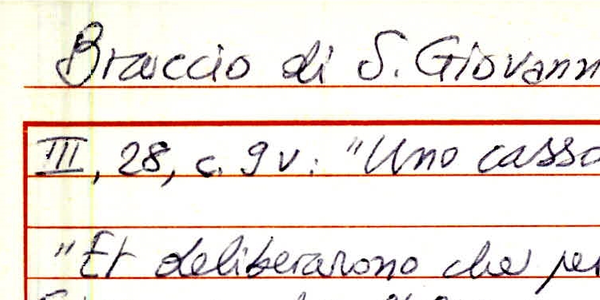 Braccio di S. Giovann
III, 28, c. 9v: "Uno casso
"Et deliberarono che per